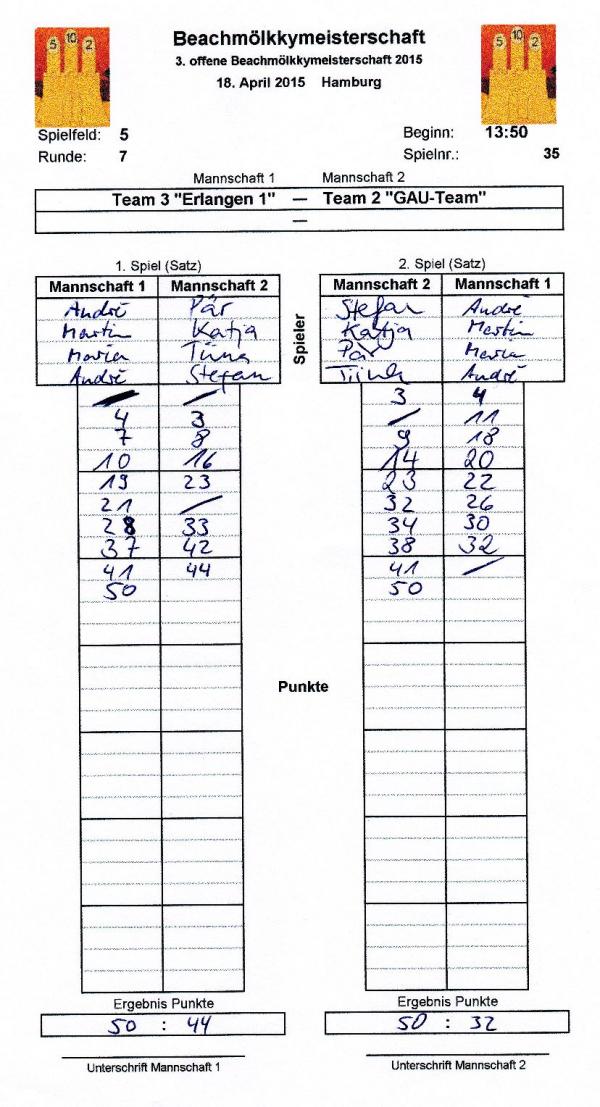 5 10 2
Beachmölkkymeisterschaft
5 10 2
3. offene Beachmölkkymeisterschaft 2015
18. April 2015 Hamburg
Spielfeld: 5
Beginn: 13:50
Runde: 7
Spielnr.: 35
Mannschaft 1 Mannschaft 2
Team 3 "Erlangen 1" — Team 2 "GAU-Team"
—
1. Spiel (Satz) 2. Spiel (Satz)
Mannschaft 1 Mannschaft 2 Mannschaft 2 Mannschaft 1
André Pär Stefan André
Martin Katja Katja Martin
Maria Tiina Pär Maria
André Stefan Tiina André
Spieler
— — 3 4
4 3 — 11
7 8 9 18
10 16 14 20
19 23 23 22
21 — 32 26
28 33 34 30
37 42 38 32
41 44 41 —
50 50
Punkte
Ergebnis Punkte Ergebnis Punkte
50 : 44 50 : 32
Unterschrift Mannschaft 1 Unterschrift Mannschaft 2